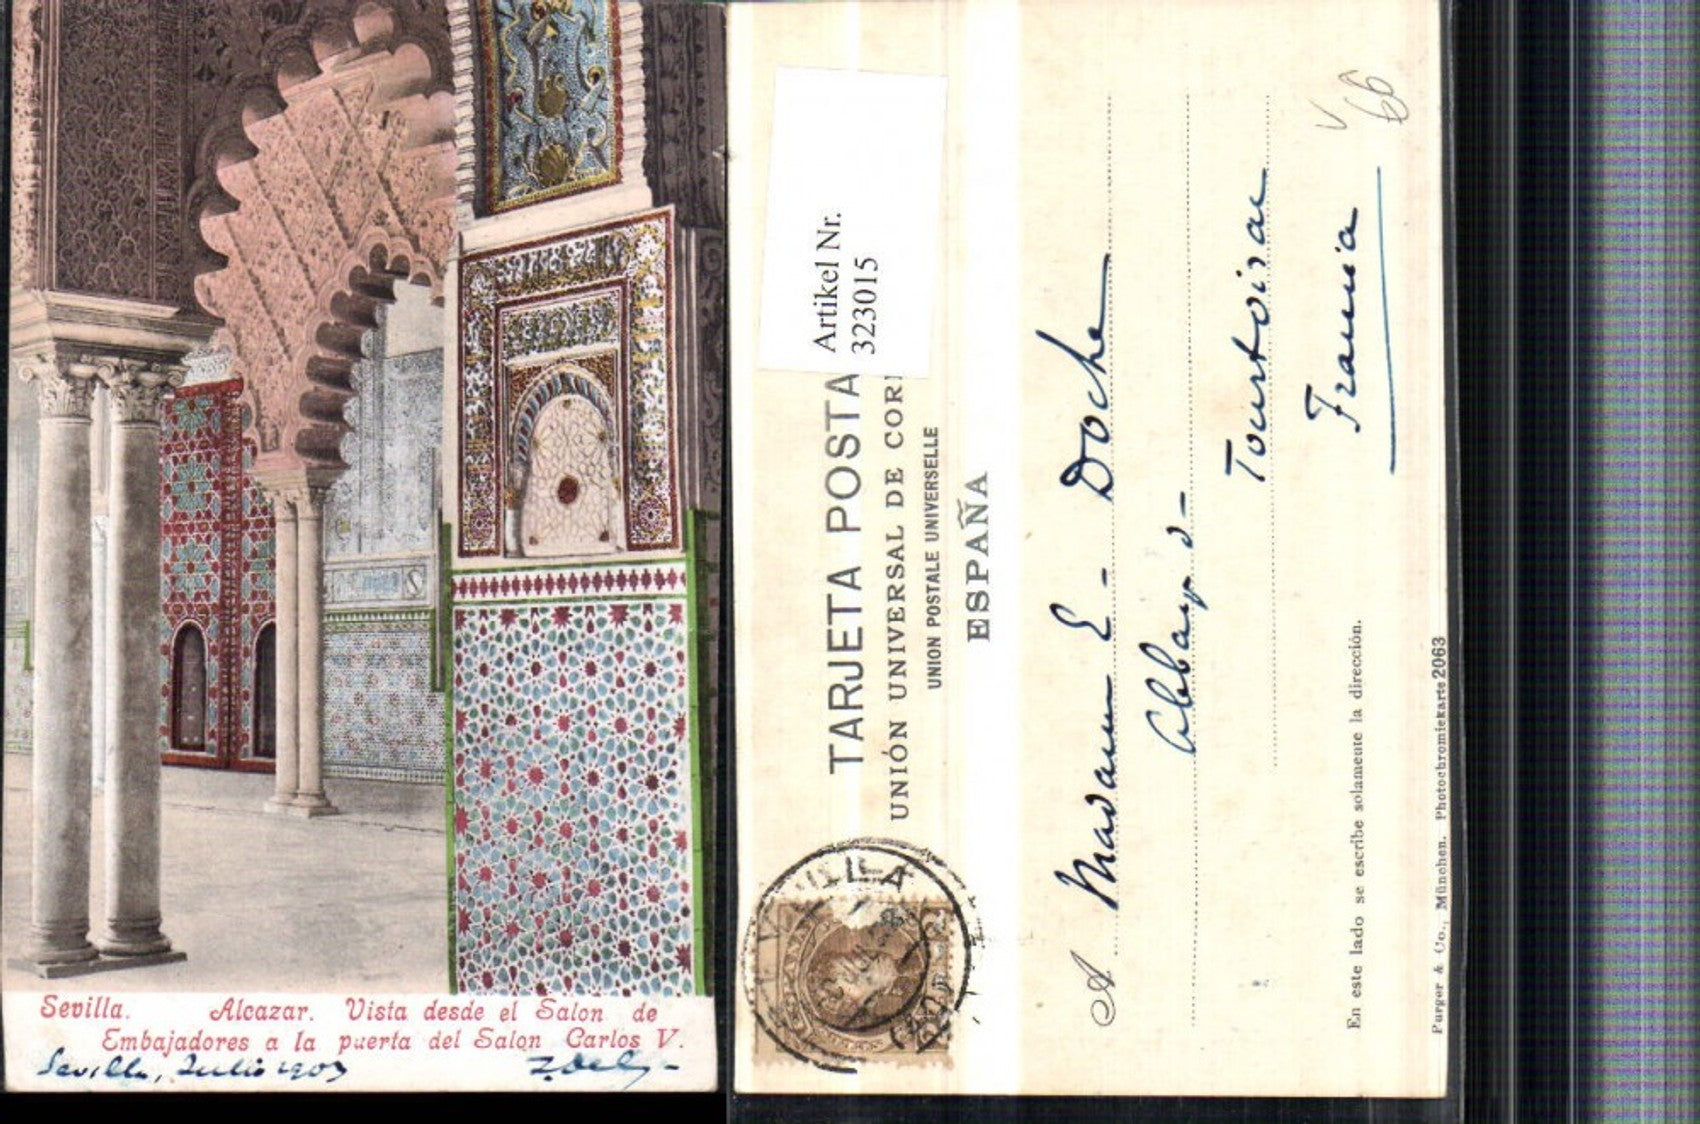 Sevilla. Alcazar. Vista desde el Salon de
Embajadores a la puerta del Salon Carlos V.
Sevilla, Julio 1903
Artikel Nr.
323015
TARJETA POSTA
UNIÓN UNIVERSAL DE COR
UNION POSTALE UNIVERSELLE
ESPAÑA
A Madame E. Doche
Tourtoirac
Francia
V 66
En este lado se escribe solamente la dirección.
Purger & Co., München. Photochromiekarte 2063